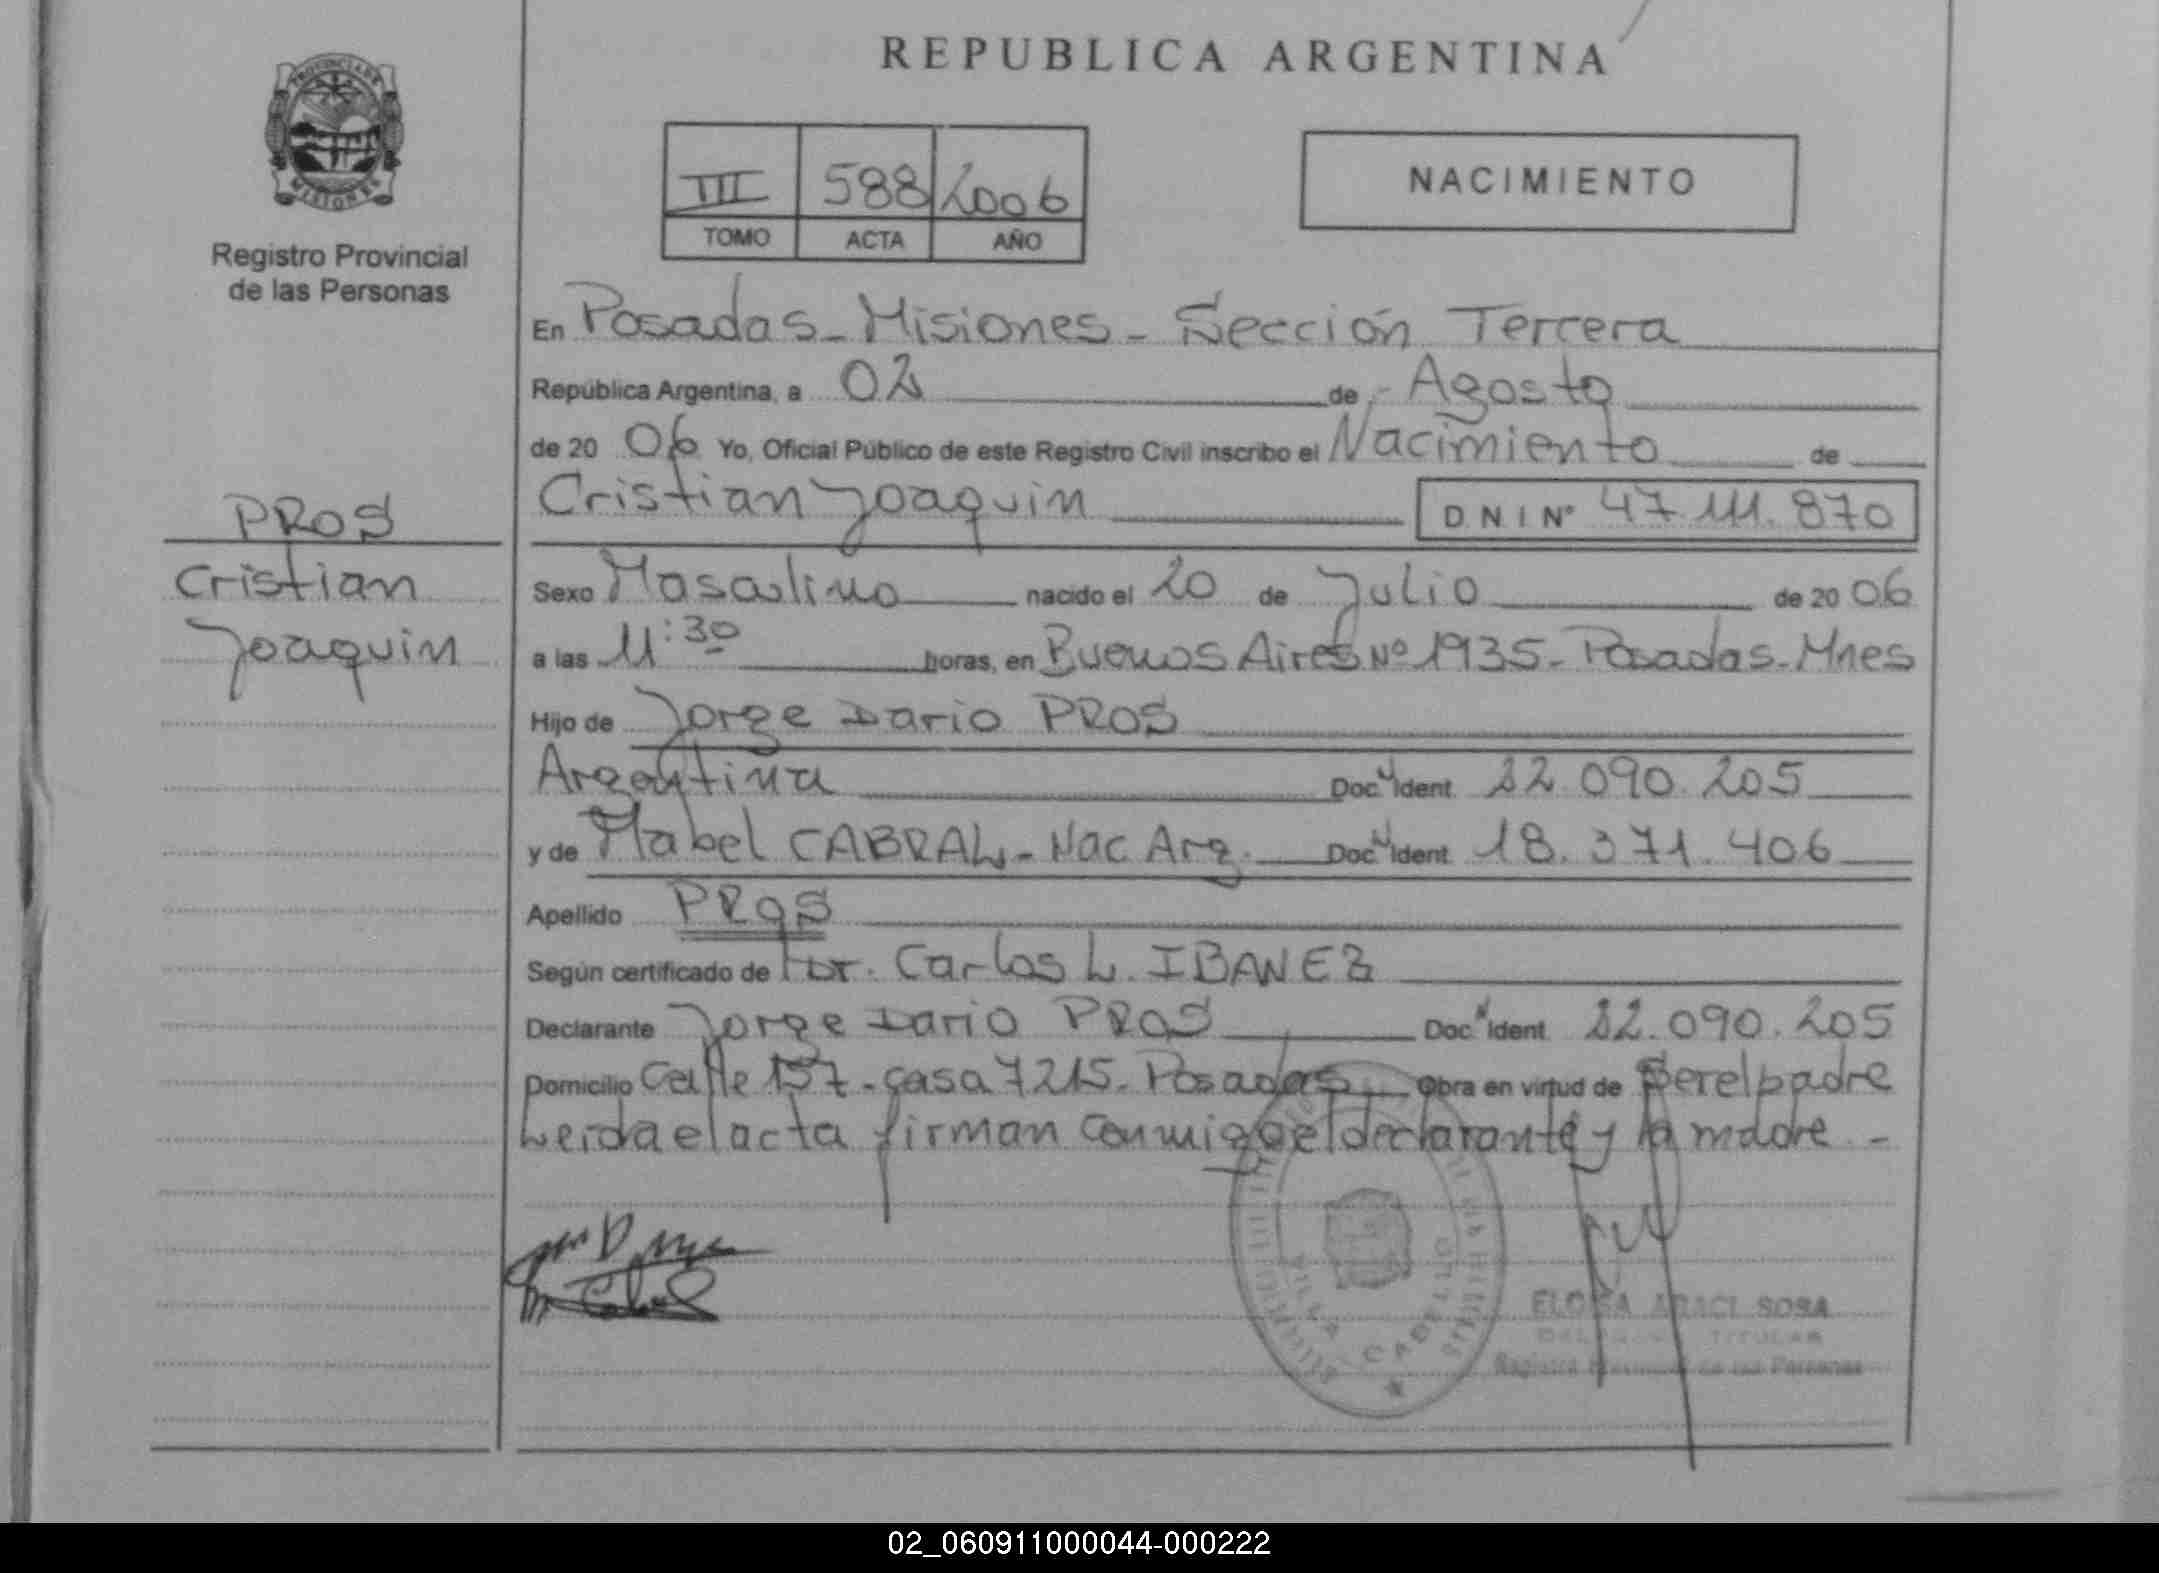 REPUBLICA ARGENTINA
PROVINCIA DE
MISIONES
Registro Provincial
de las Personas
III 588 2006
TOMO ACTA AÑO
NACIMIENTO
PROS
Cristian
Joaquin
En Posadas - Misiones - Sección Tercera
República Argentina, a 02 de Agosto
de 20 06 Yo, Oficial Público de este Registro Civil inscribo el Nacimiento de
Cristian Joaquin D N I N° 47.111.870
Sexo Masculino nacido el 20 de Julio de 20 06
a las 11:30 horas, en Buenos Aires Nº 1935 - Posadas - Mnes
Hijo de Jorge Dario PROS
Argentina Doc. Ident. 22.090.205
y de Mabel CABRAL - Nac Arg. Doc. Ident. 18.371.406
Apellido PROS
Según certificado de Dr. Carlos L. IBANEZ
Declarante Jorge Dario PROS Doc. Ident. 22.090.205
Domicilio Calle 157 - casa 7215 - Posadas Obra en virtud de Ser el padre
Leida el acta firman conmigo el declarante y la madre -
VILLA CABELLO
ELOISA ARACI SOSA
TITULAR
Registro Provincial de las Personas
02_060911000044-000222